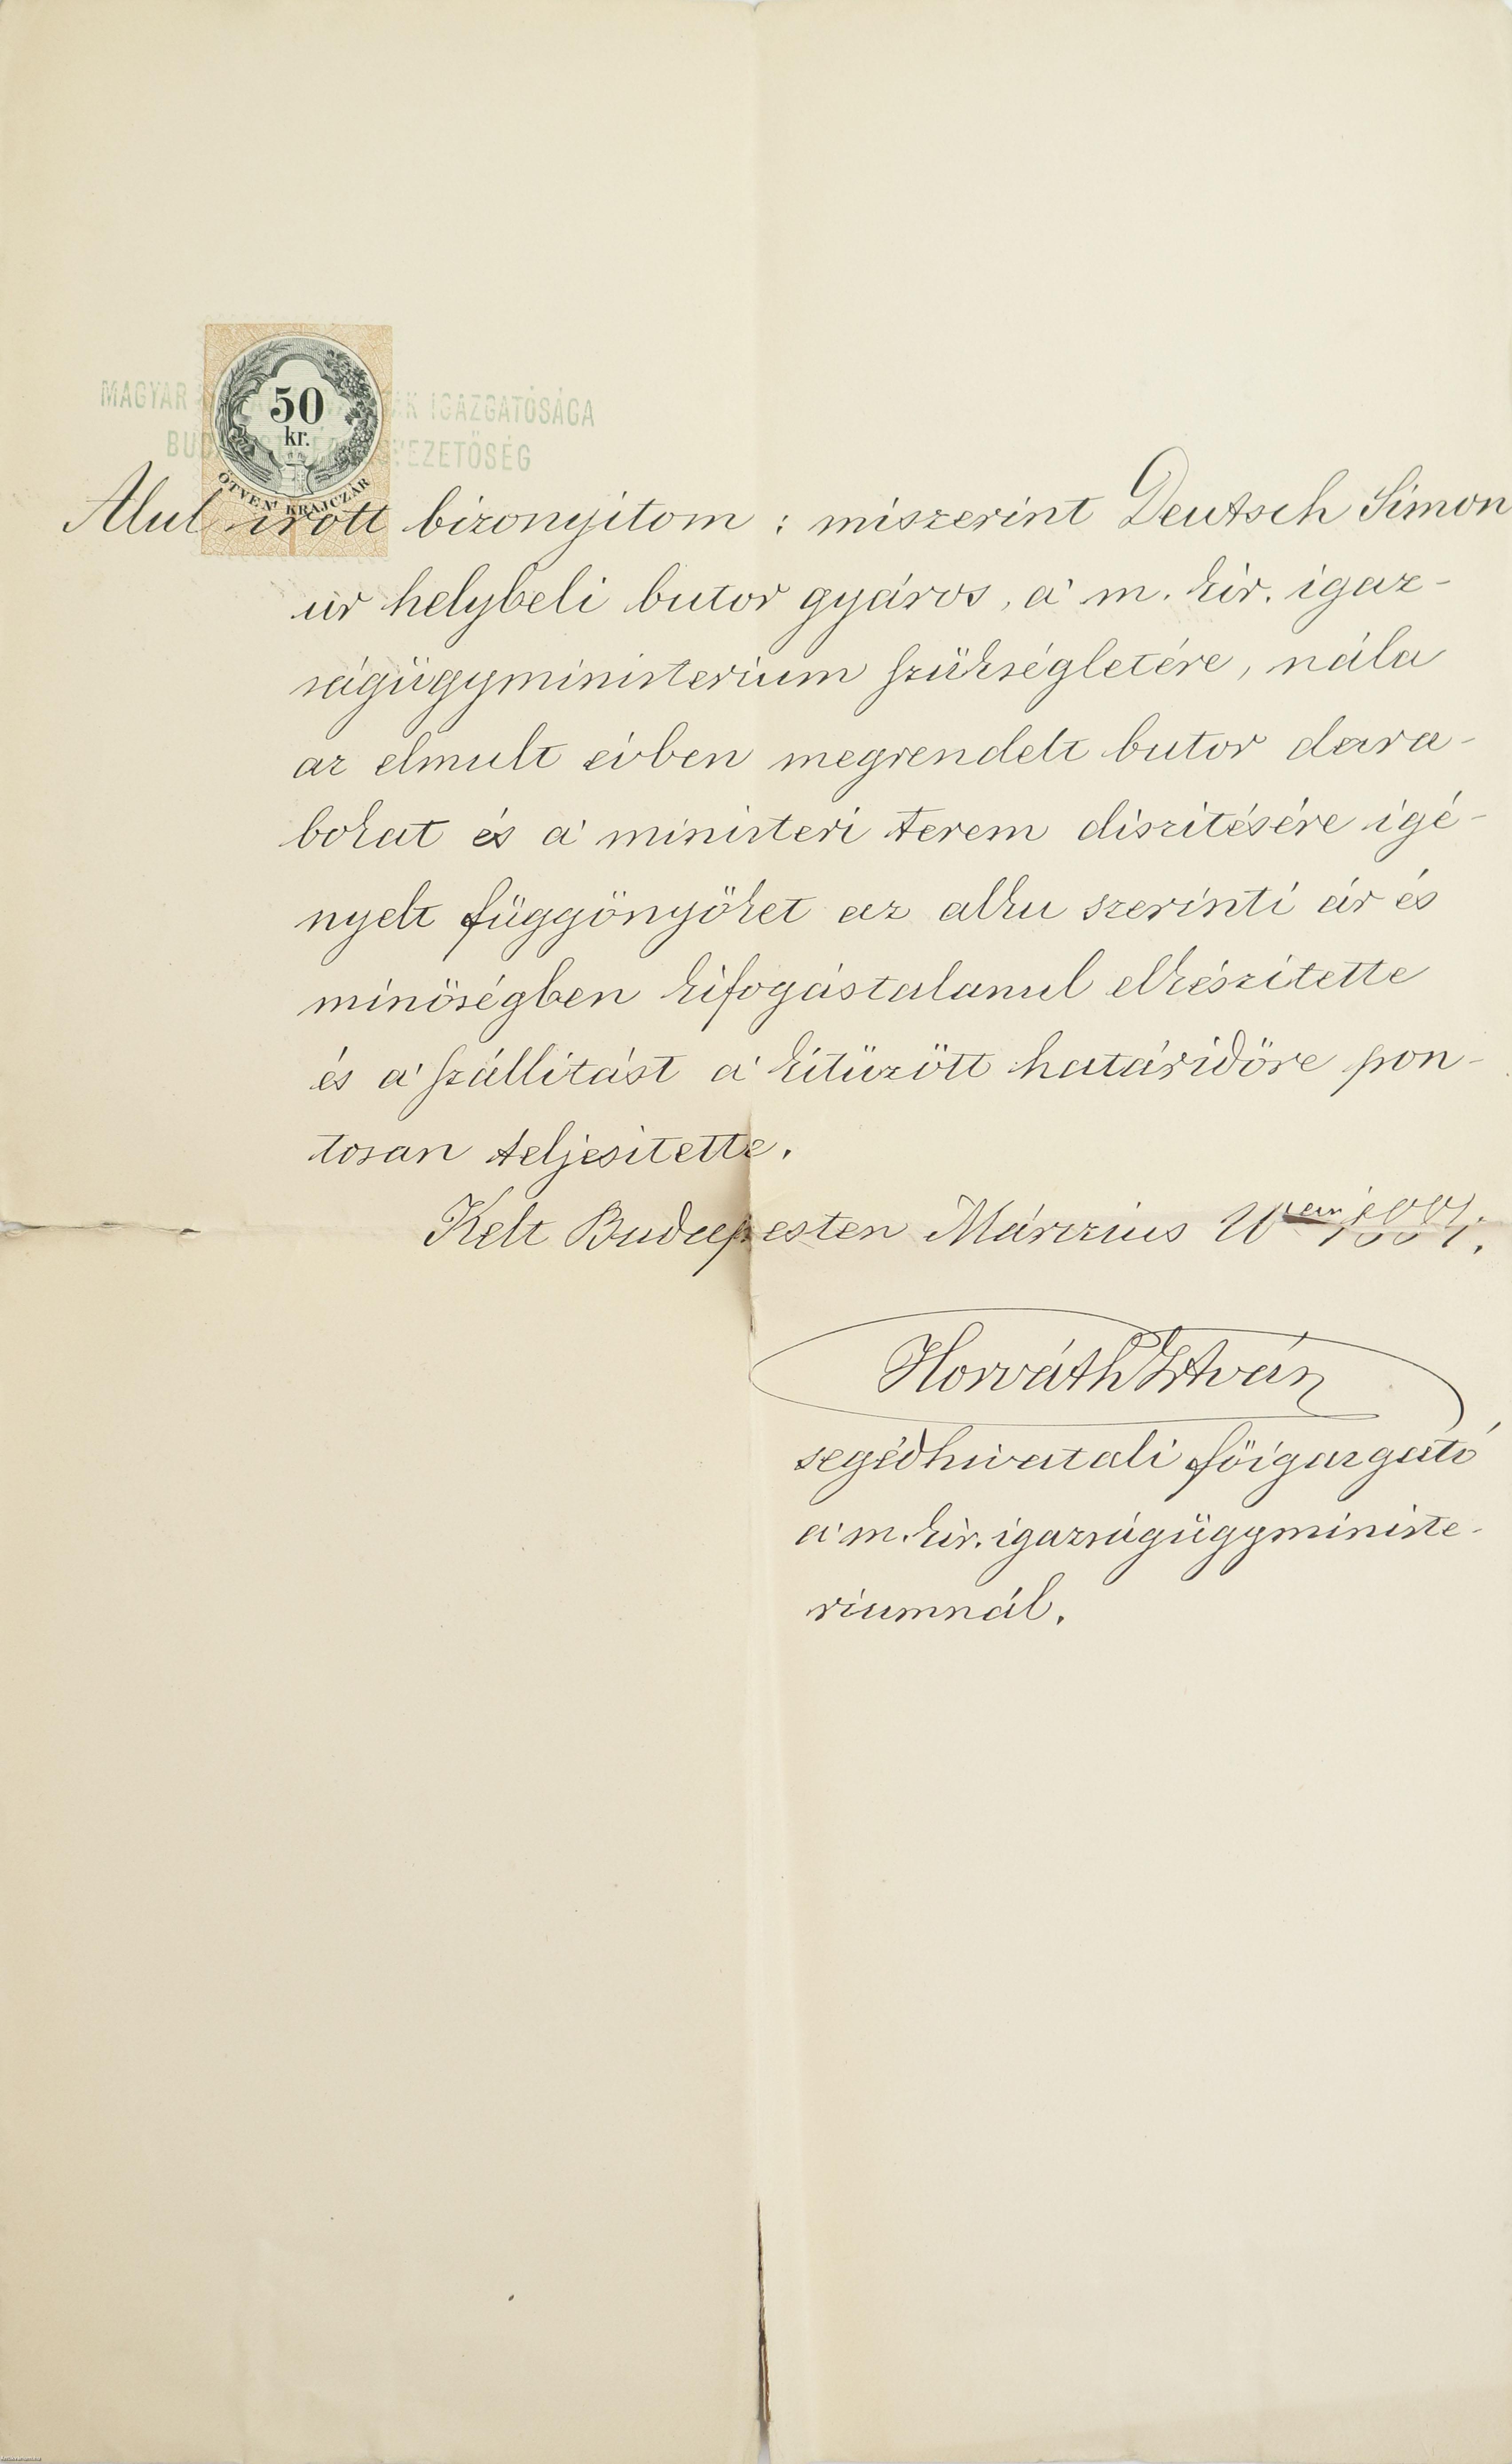 MAGYAR IGAZGATÓSÁGA
50
kr.
ÖTVEN KRAJCZÁR
Alul irott bizonyitom : miszerint Deutsch Simon
úr helybeli butor gyáros, a' m. kir. igaz-
ságügyministerium szükségletére, nála
az elmult évben megrendelt butor dara-
bokat és a' ministeri terem diszitésére igé-
nyelt függönyöket az alku szerinti ár és
minöségben kifogástalanul elkészitette
és a' szállitást a' kitüzött határidöre pon-
tosan teljesitette.
Kelt Budapesten Márczius
Horváth István
segédhivatali föigazgató
a' m. kir. igazságügyministe-
riumnál.